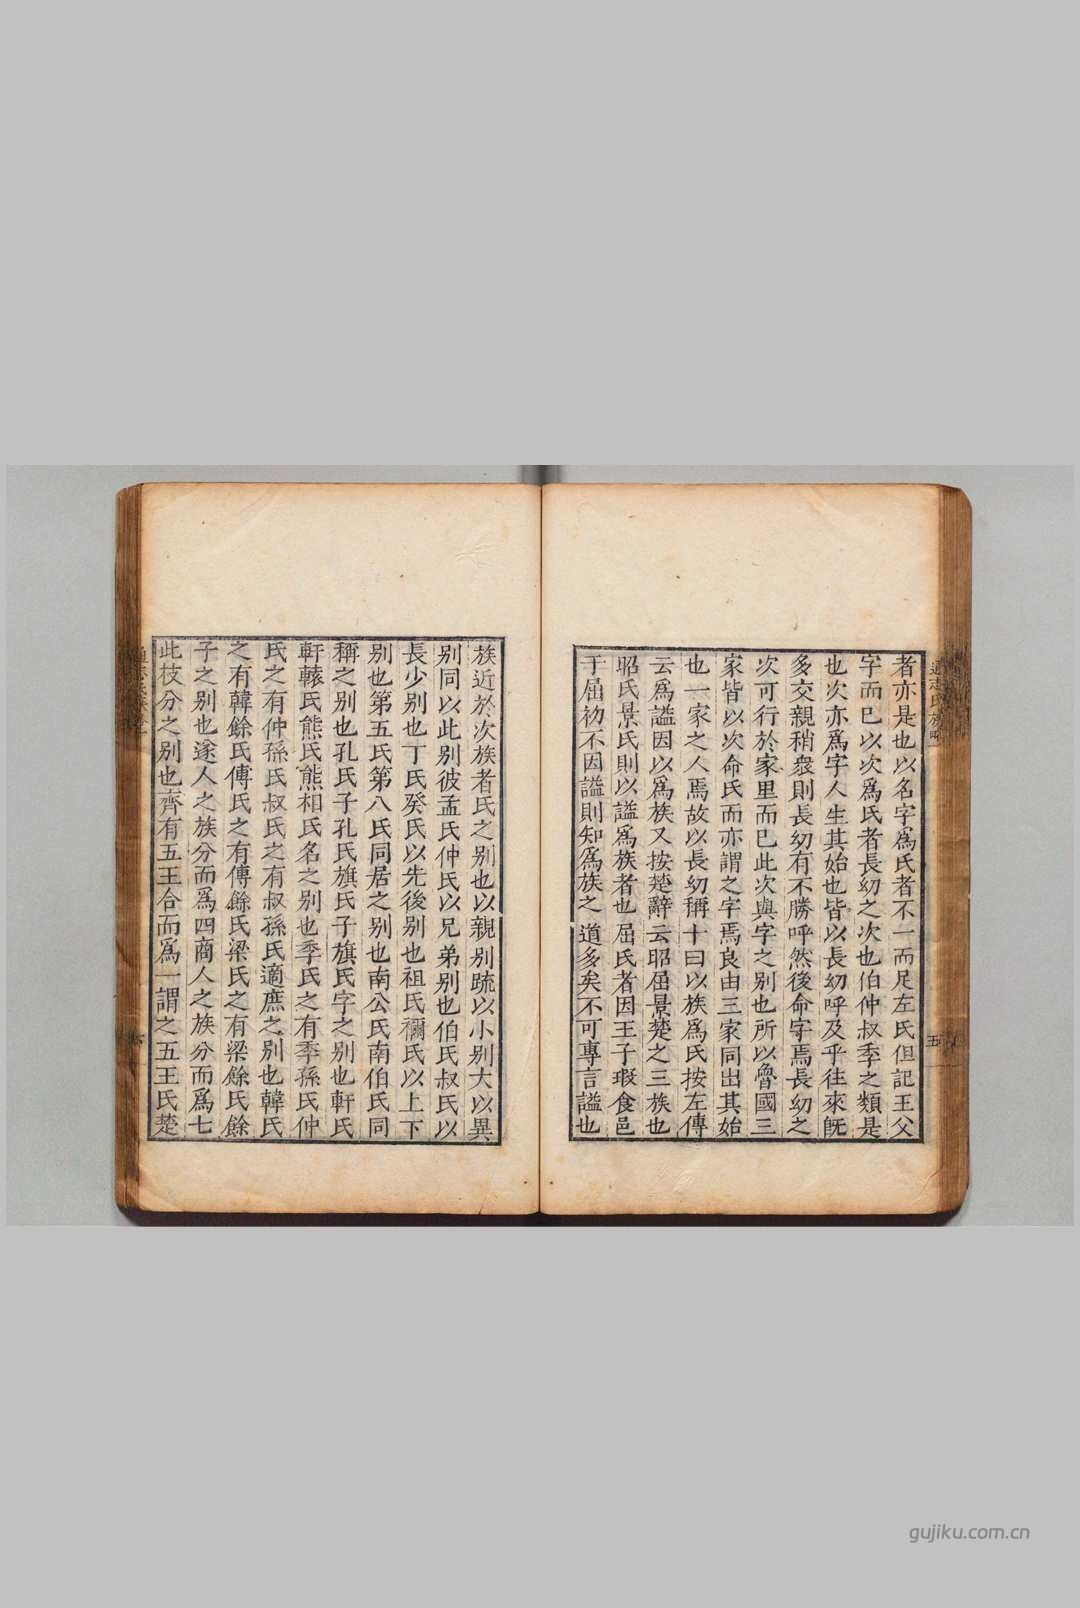 通志氏族略
者亦是也以名字爲氏者不一而足左氏但記王父
字而已以次爲氏者長幼之次也伯仲叔季之類是
也次亦爲字人生其始也皆以長幼呼及乎往來旣
多交親稍衆則長幼有不勝呼然後命字焉長幼之
次可行於家里而已此次與字之別也所以魯國三
家皆以次命氏而亦謂之字焉良由三家同出其始
也一家之人焉故以長幼稱十曰以族爲氏按左傳
云爲謚因以爲族又按楚辭云昭屈景楚之三族也
昭氏景氏則以謚爲族者也屈氏者因王子瑕食邑
于屈初不因謚則知爲族之道多矣不可專言謚也
五
族近於次族者氏之別也以親別疏以小別大以異
別同以此別彼孟氏仲氏以兄弟別也伯氏叔氏以
長少別也丁氏癸氏以先後別也祖氏禰氏以上下
別也第五氏第八氏同居之別也南公氏南伯氏同
稱之別也孔氏子孔氏旗氏子旗氏字之別也軒氏
軒轅氏熊氏熊相氏名之別也季氏之有季孫氏仲
氏之有仲孫氏叔氏之有叔孫氏適庶之別也韓氏
之有韓餘氏傅氏之有傅餘氏梁氏之有梁餘氏餘
子之別也遂人之族分而爲四商人之族分而爲七
此枝分之別也齊有五王合而爲一謂之五王氏楚
gujiku.com.cn